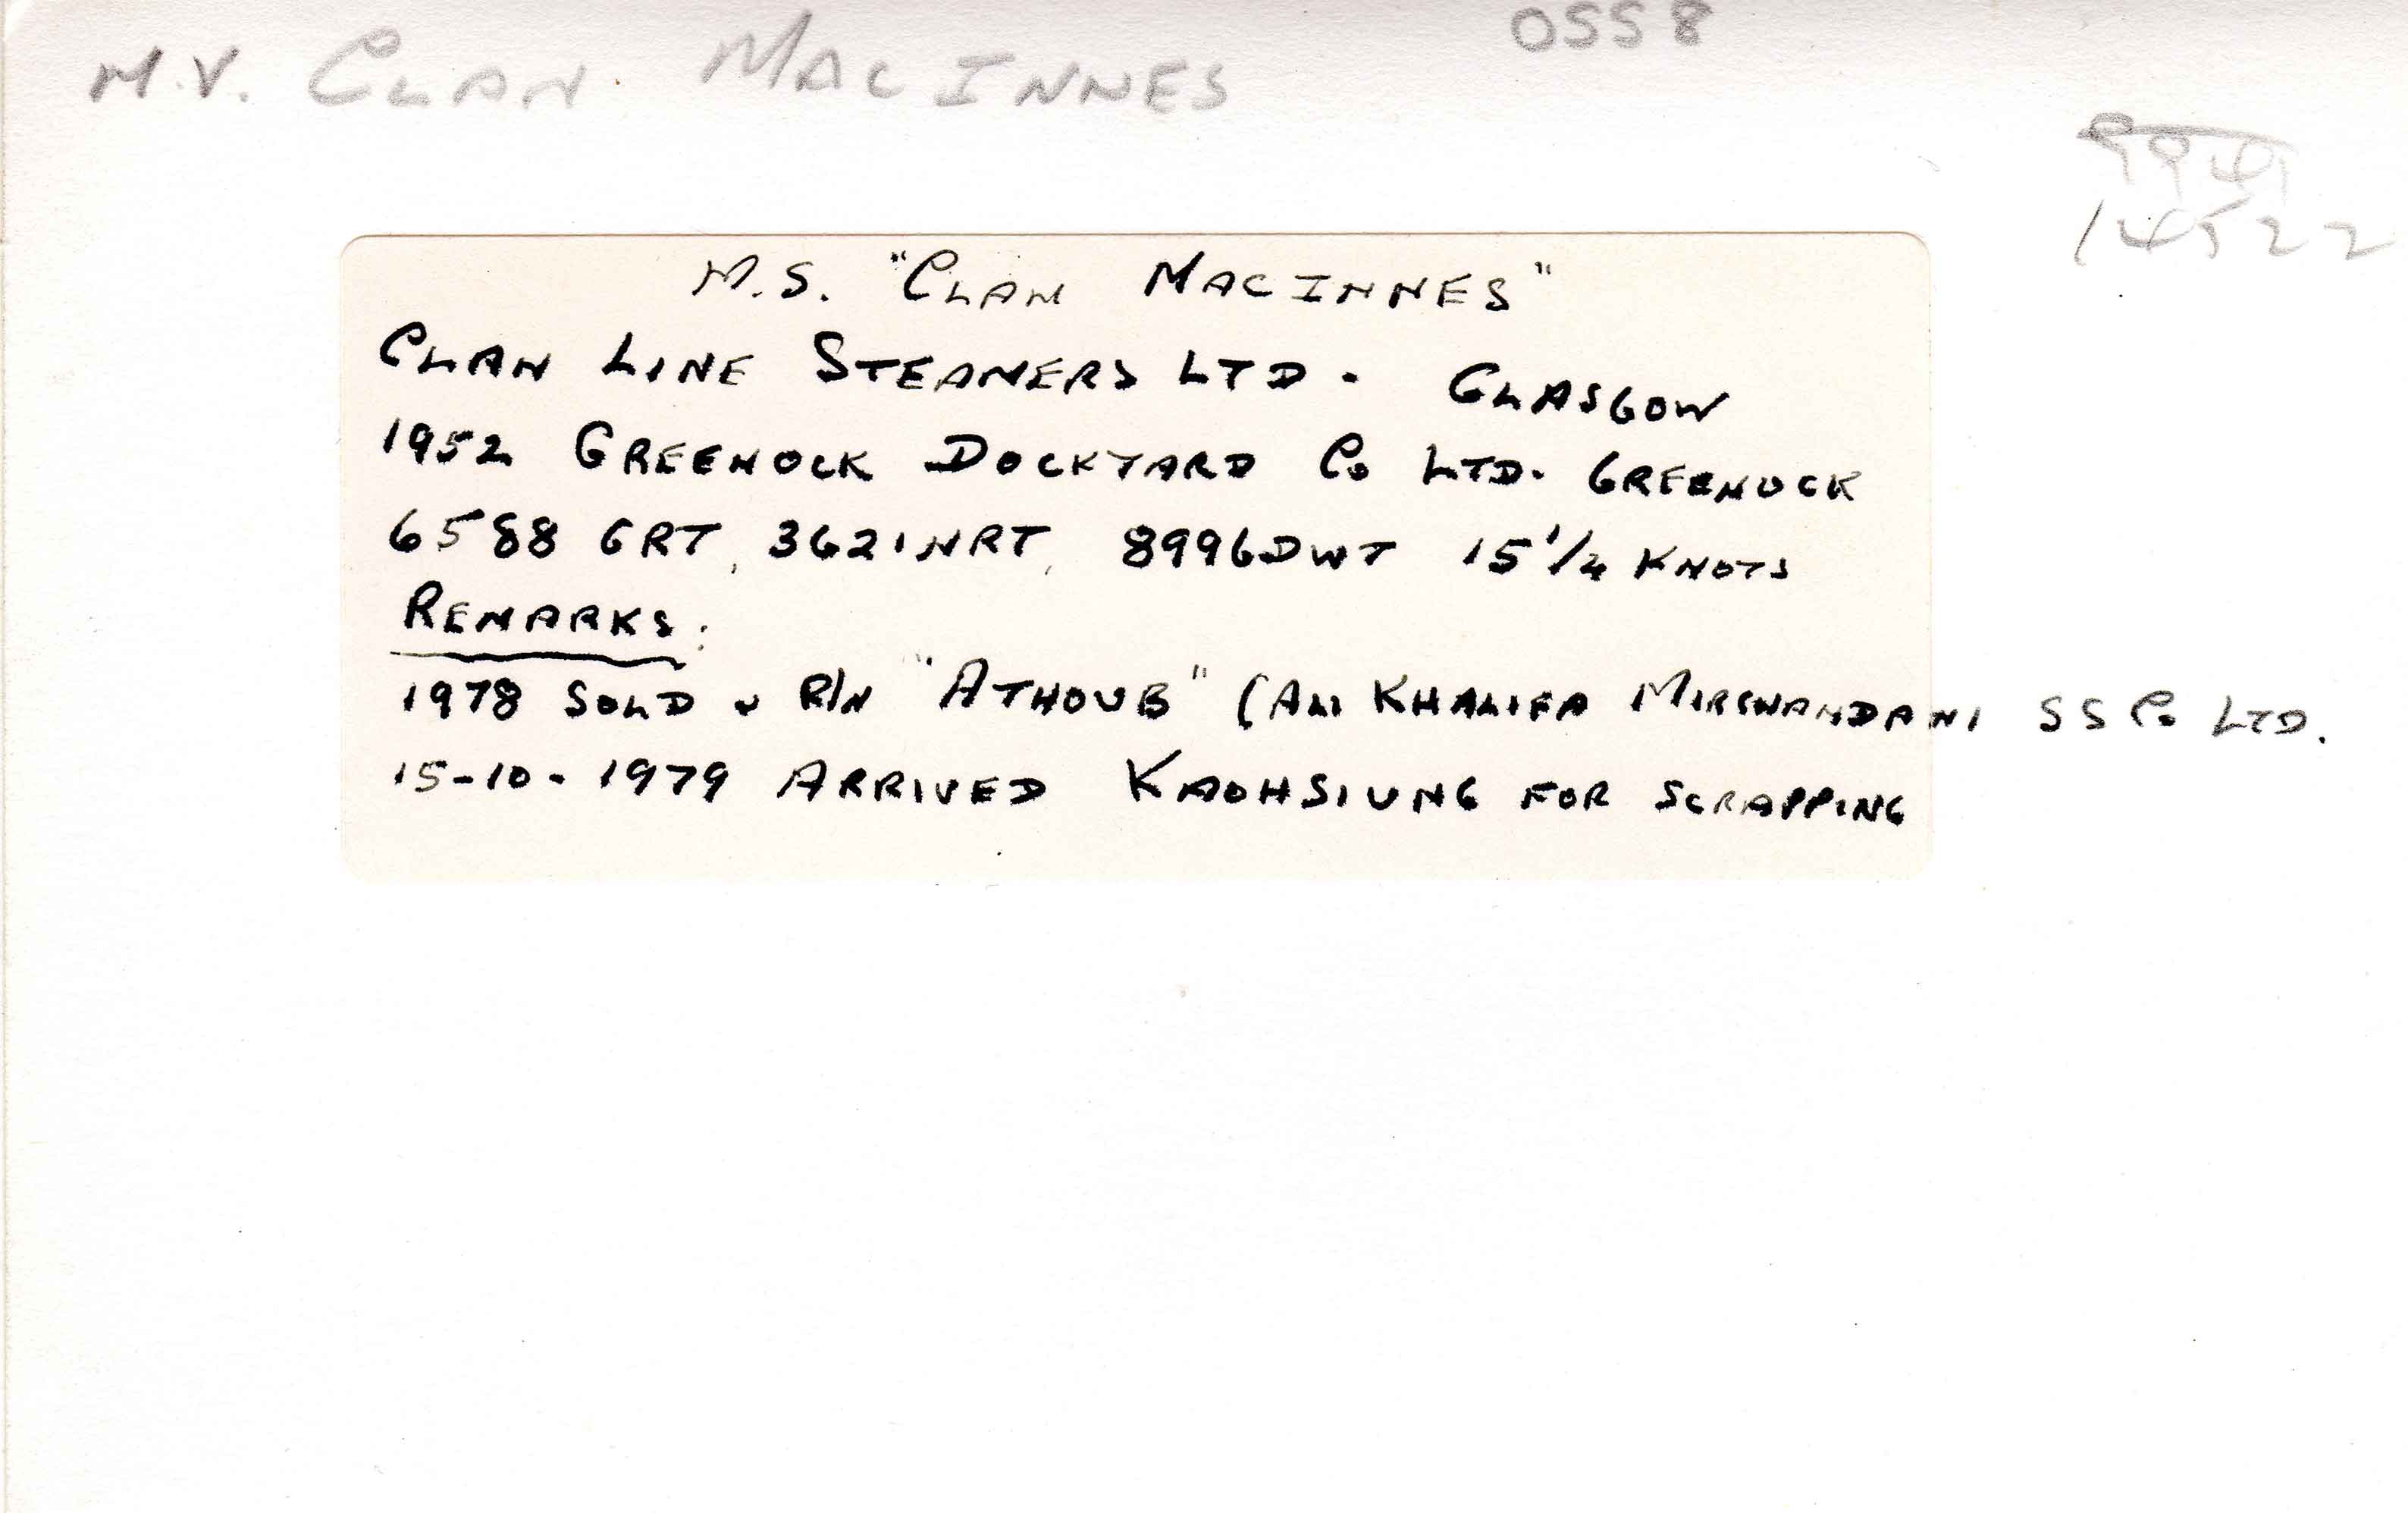 0558
M.V. CLAN MACINNES
14522
M.S. "CLAN MACINNES"
CLAN LINE STEAMERS LTD. GLASGOW
1952 GREENOCK DOCKYARD Co LTD. GREENOCK
6588 GRT, 3621 NRT, 8996 DWT 15 1/4 KNOTS
REMARKS:
1978 SOLD & R/N "ATHOUB" (ALI KHALIFA MIRCHANDANI SS Co LTD.
15-10-1979 ARRIVED KAOHSIUNG FOR SCRAPPING